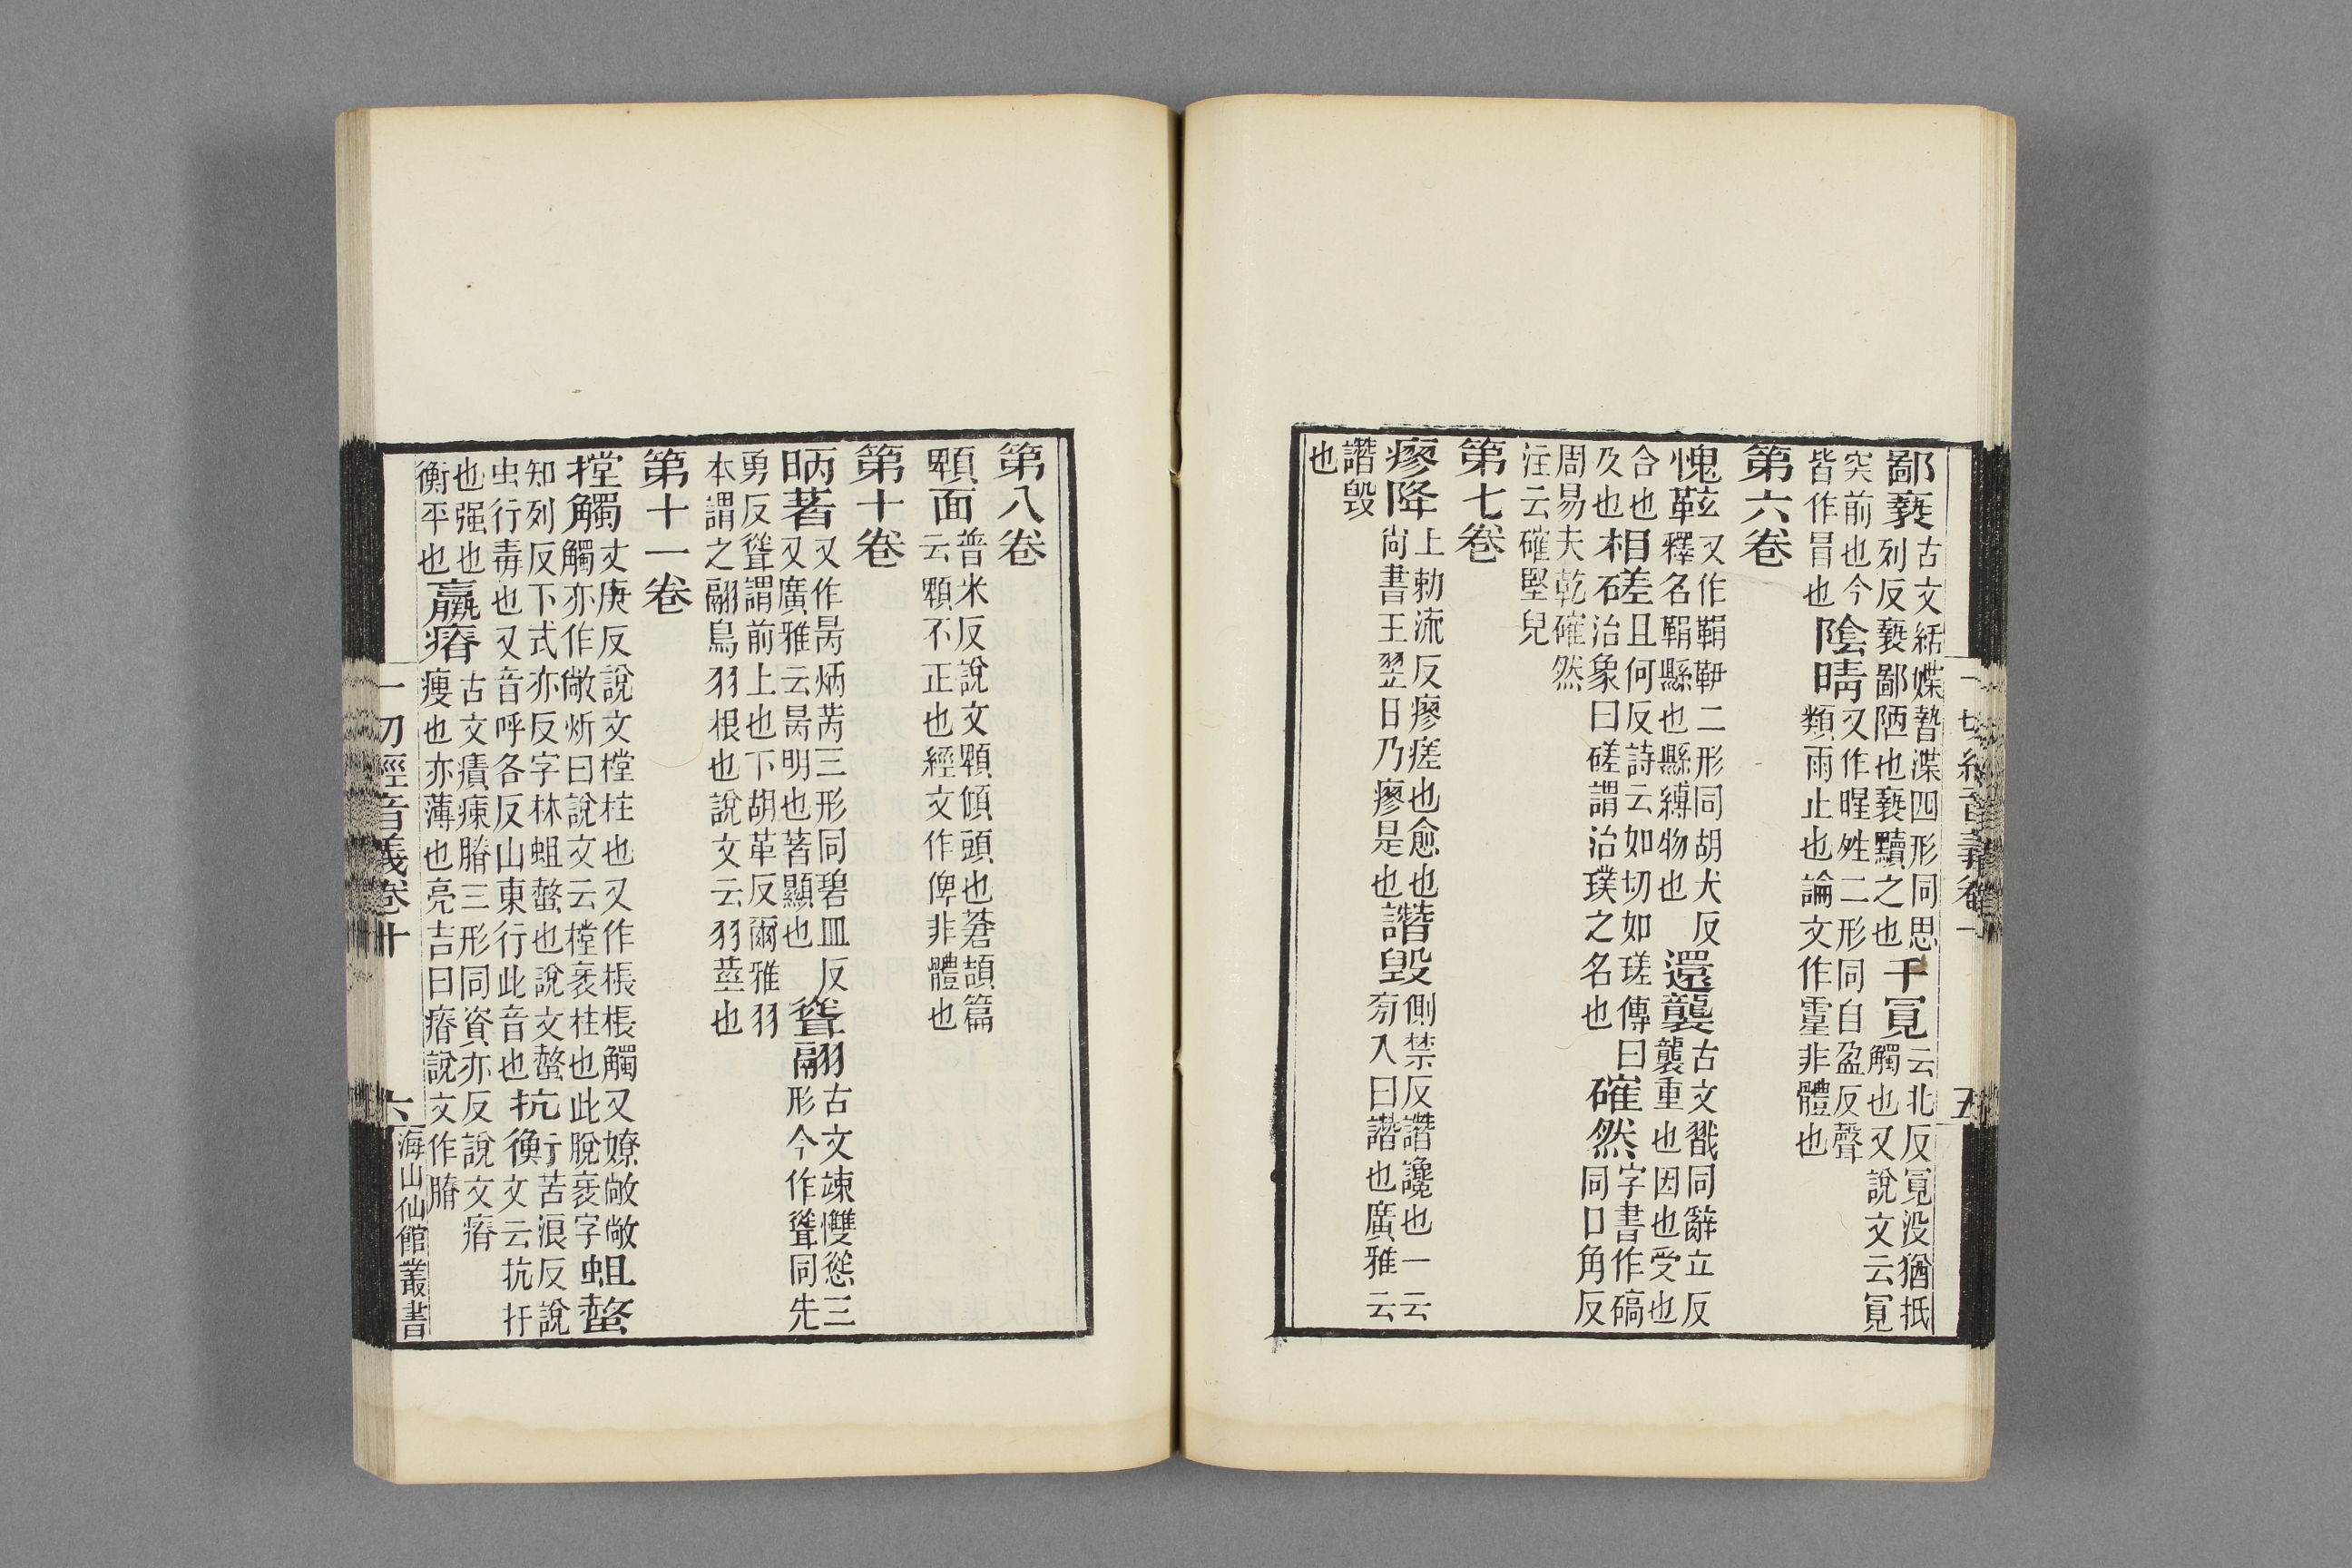 鄙褻古文絬媟暬渫四形同思列反褻鄙陋也褻黷之也干冒云北反冒没猶抵觸也又說文云冒
突前也今皆作冒也陰晴又作暒夝二形同自盈反聲類雨止也論文作霔非體也
第六卷
愧鞊又作鞙䩙二形同胡犬反釋名鞙懸也懸縛物也還襲古文戳同辭立反襲重也因也受也
合也及也相差且何反詩云如切如瑳傳曰治象曰磋謂治璞之名也確然字書作碻同口角反
周易夫乾確然注云確堅皃
第七卷
瘳降上勑流反瘳瘥也愈也尚書王翌日乃瘳是也譖毀側禁反譖讒也一云旁入曰譖也廣雅云
譖毀也
一切經音義卷十
五
第八卷
顊面普米反說文顊傾頭也蒼頡篇云顊不正也經文作俾非體也
第十卷
昞著又作昺炳苪三形同碧皿反又廣雅云昺明也著顯也聳翮古文竦㩳慫三形今作聳同先
勇反聳謂前上也下胡革反爾雅羽本謂之翮鳥羽根也說文云羽莖也
第十一卷
摚觸丈庚反說文樘柱也又作棖棖觸又嫽敞敞觸亦作敞炘曰說文云樘衺柱也此脫衺字蛆螫
知列反下式亦反字林蛆螫也說文螫虫行毒也又音呼各反山東行此音也抗衡行苦浪反說文云抗扞
也强也衡平也羸瘠古文㿉㾊膌三形同資亦反說文瘠瘦也亦薄也亮吉曰瘠說文作膌
一切經音義卷十
六
海山仙館叢書